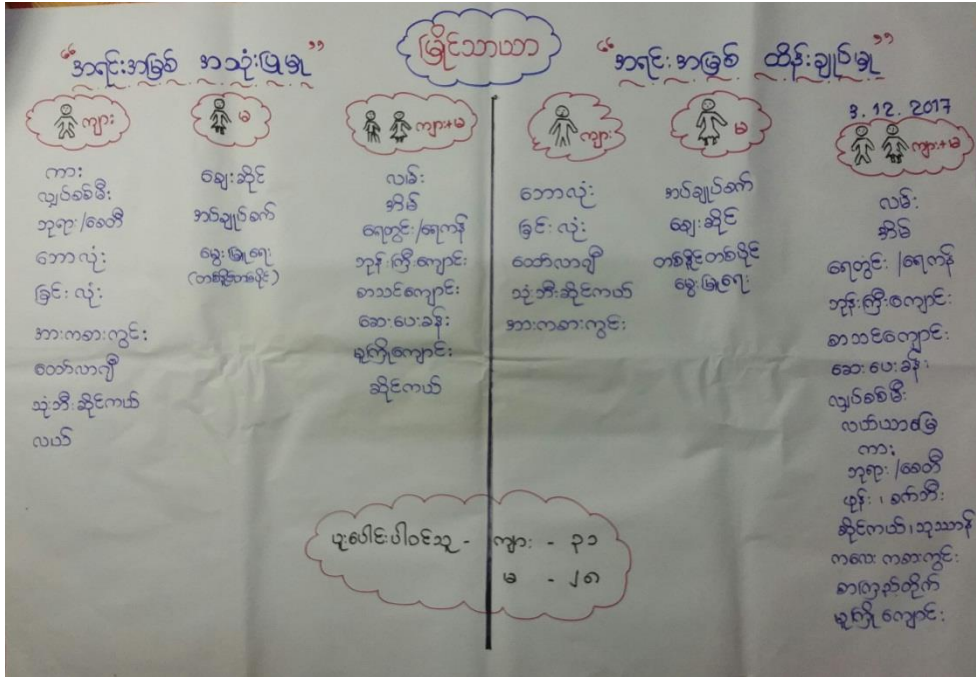 မြိုင်သာယာ
“အရင်းအမြစ် အသုံးပြုမှု”
ကျား
ကား
လျှပ်စစ်မီး
ဘုရား/စေတီ
ဘောလုံး
ခြင်းလုံး
အားကစားကွင်း
ထော်လာဂျီ
သုံးဘီးဆိုင်ကယ်
လယ်
မ
ဈေးဆိုင်
အပ်ချုပ်စက်
မွေးမြူရေး
(တစ်နိုင်တစ်ပိုင်)
ကျား+မ
လမ်း
အိမ်
ရေတွင်း/ရေကန်
ဘုန်းကြီးကျောင်း
စာသင်ကျောင်း
ဆေးပေးခန်း
မူကြိုကျောင်း
ဆိုင်ကယ်
“အရင်းအမြစ် ထိန်းချုပ်မှု”
3.12.2017
ကျား
ဘောလုံး
ခြင်းလုံး
ထော်လာဂျီ
သုံးဘီးဆိုင်ကယ်
အားကစားကွင်း
မ
အပ်ချုပ်စက်
ဈေးဆိုင်
တစ်နိုင်တစ်ပိုင်
မွေးမြူရေး
ကျား+မ
လမ်း
အိမ်
ရေတွင်း/ရေကန်
ဘုန်းကြီးကျောင်း
စာသင်ကျောင်း
ဆေးပေးခန်း
လျှပ်စစ်မီး
လယ်ယာမြေ
ကား
ဘုရား/စေတီ
ဖုန်း၊ စက်ဘီး
ဆိုင်ကယ်၊သုဿာန်
ကလေးကစားကွင်း
စာကြည့်တိုက်
မူကြိုကျောင်း
ပူးပေါင်းပါဝင်သူ - ကျား - ၃၁
မ - ၂၈